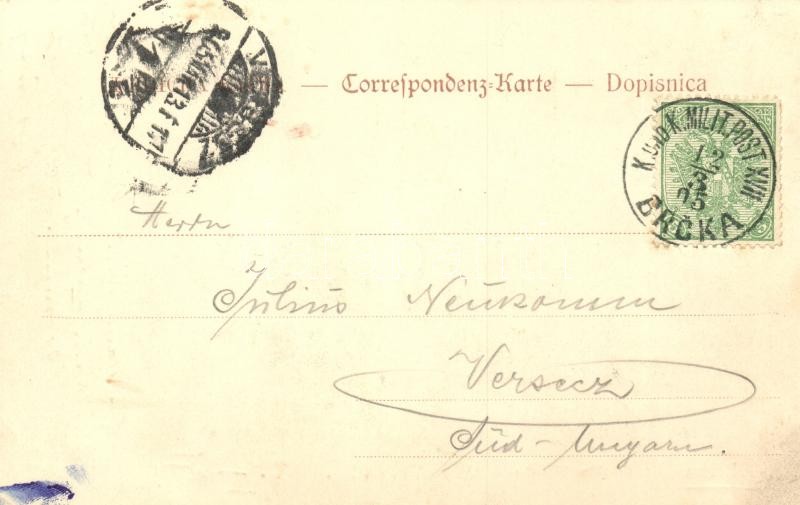 — Correſpondenz-Karte — Dopisnica
K.UND K. MILIT. POST XVII
12
3
BRČKA
Herrn
Julius Neukomm
Versecz
Süd-Ungarn.